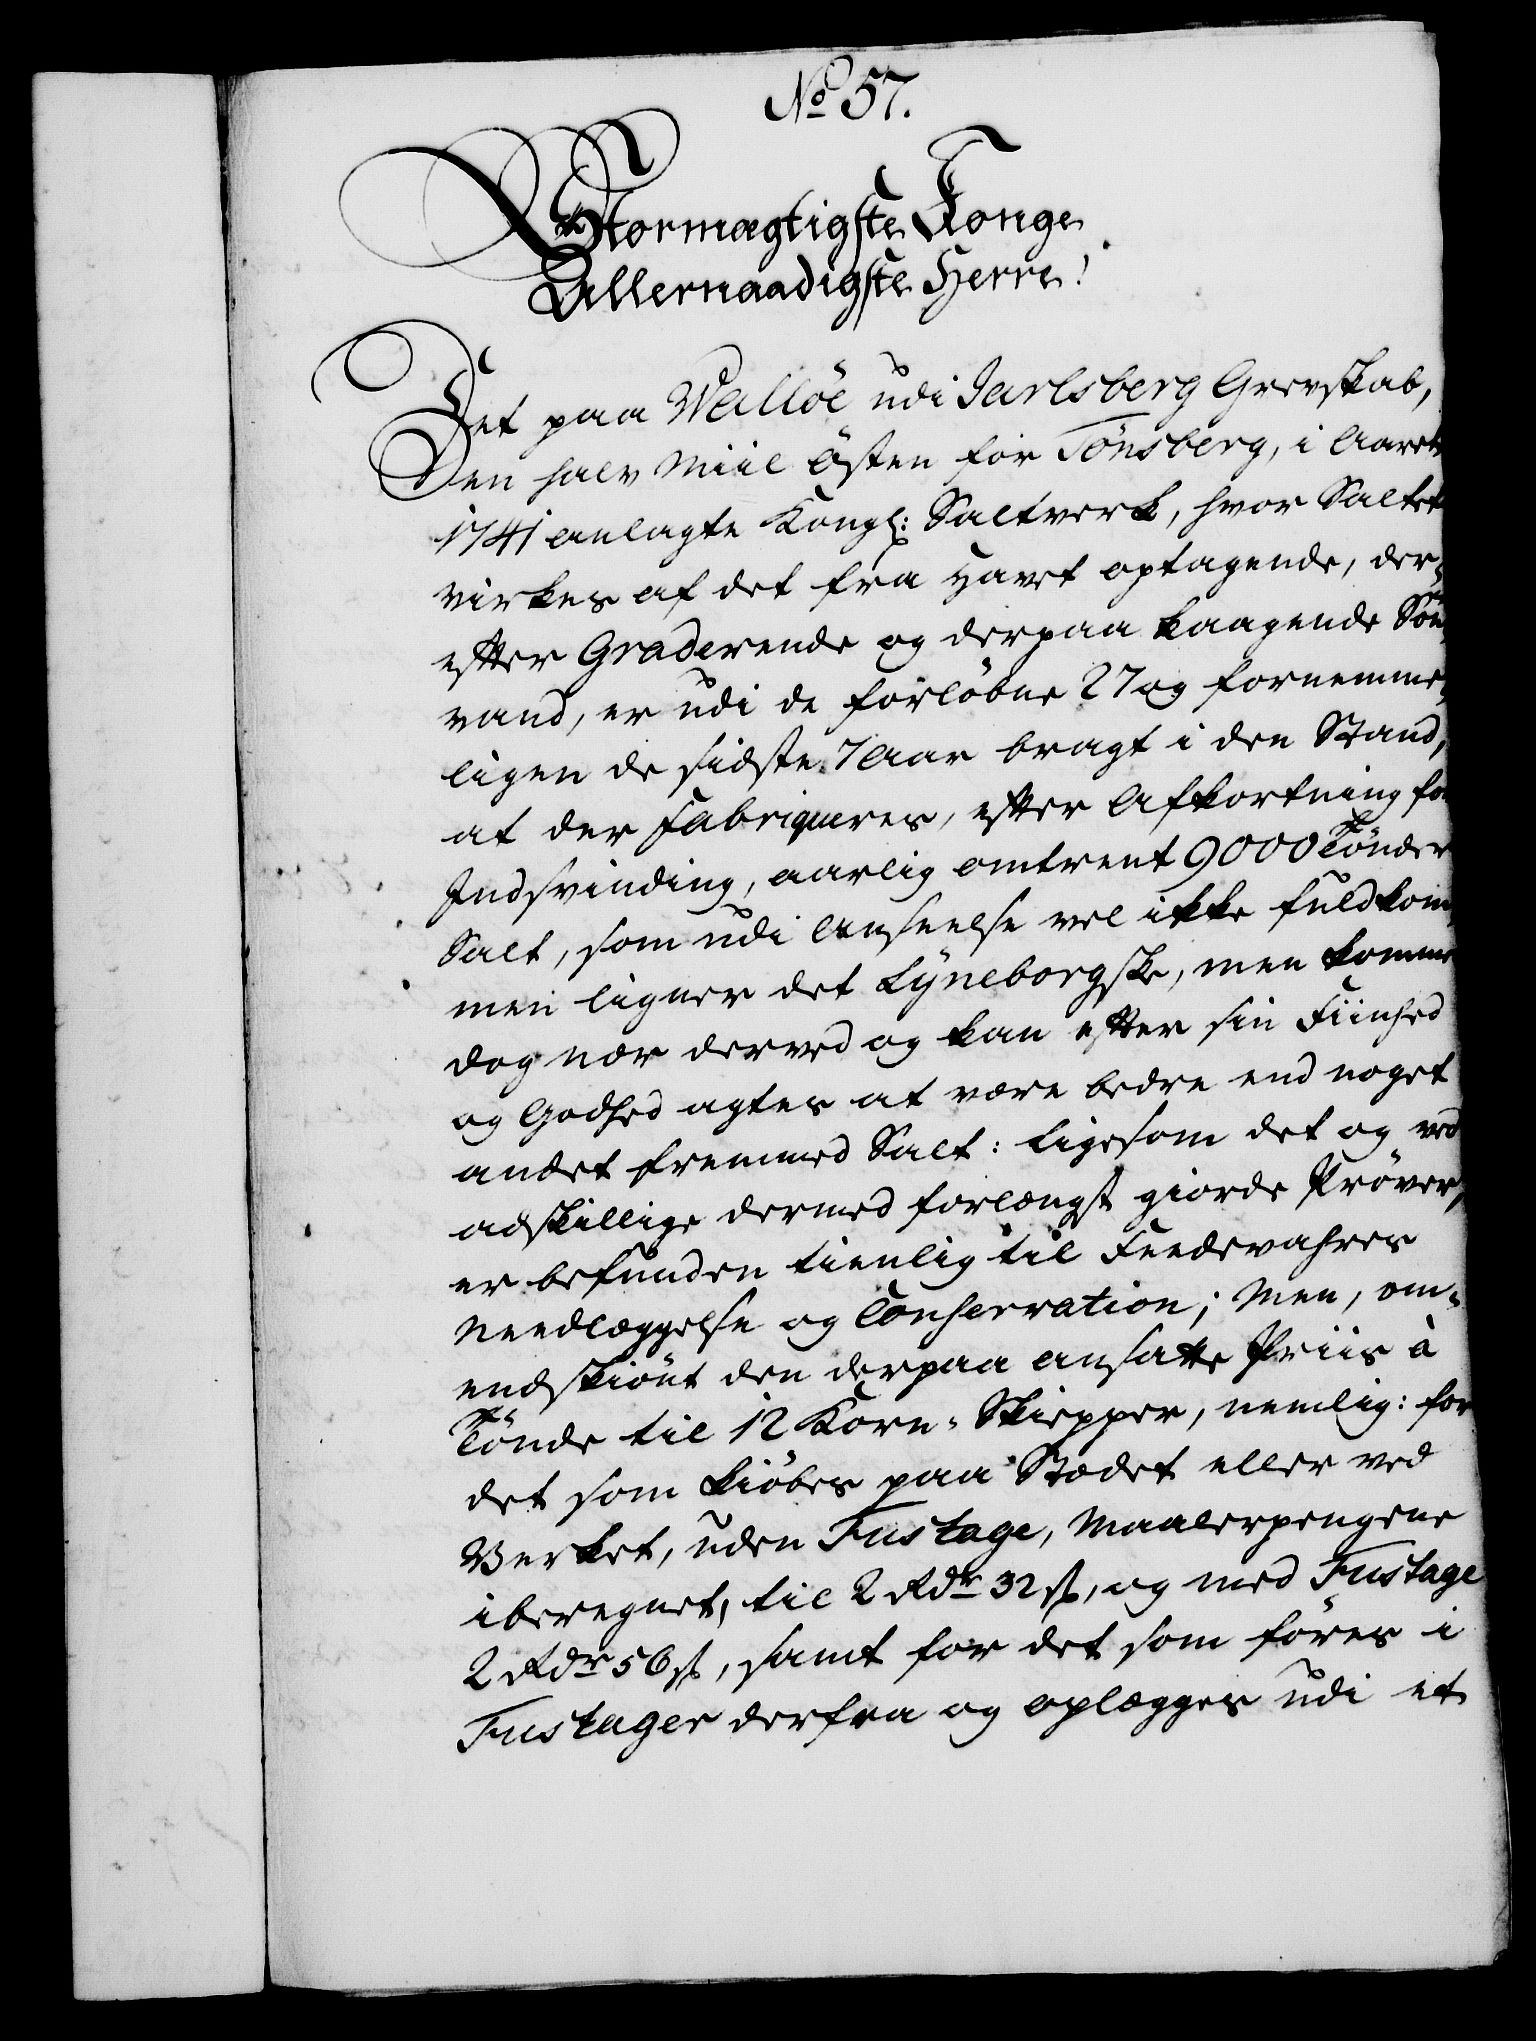 No 57.
Stormægtigste Konge
Allernaadigste Herre!
Det paa Walløe udi Jarlsberg Grevskab,
Een halv Miil Østen for Tønsberg, i Aaret
1741 anlagte Kongl: Saltverk, hvor Saltet
virkes af det fra Havet optagende, der-
efter Graderende og derpaa kaagende Søe-
vand, er udi de forløbne 27 og fornemme-
ligen de sidste 7 Aar bragt i den Stand,
at der Fabriqueres, efter Afkortning for
Indsvinding, aarlig omtrent 9000 Tønder
Salt, som udi Anseelse vel ikke fuldkom-
men ligner det Lyneborgske, men kommer
dog nær derved og kan efter sin Fiinhed
og Godhed agtes at være bedre end noget
andet fremmed Salt: ligesom det og ved
adskillige dermed forlængst giorde Prøver,
er befunden tienlig til Feedevahres
Needlæggelse og Conservation; Men, om-
endskiønt den derpaa ansatte Priis à
Tønde til 12 Korn-Skiepper, nemlig: for
det som kiøbes paa Stædet eller ved
Verket, uden Fustage, Maalerpengene
iberegnet, til 2 Rdr 32 s, og med Fustage
2 Rdr 56 s, samt for det som føres i
Fustager derfra og oplægges udi et